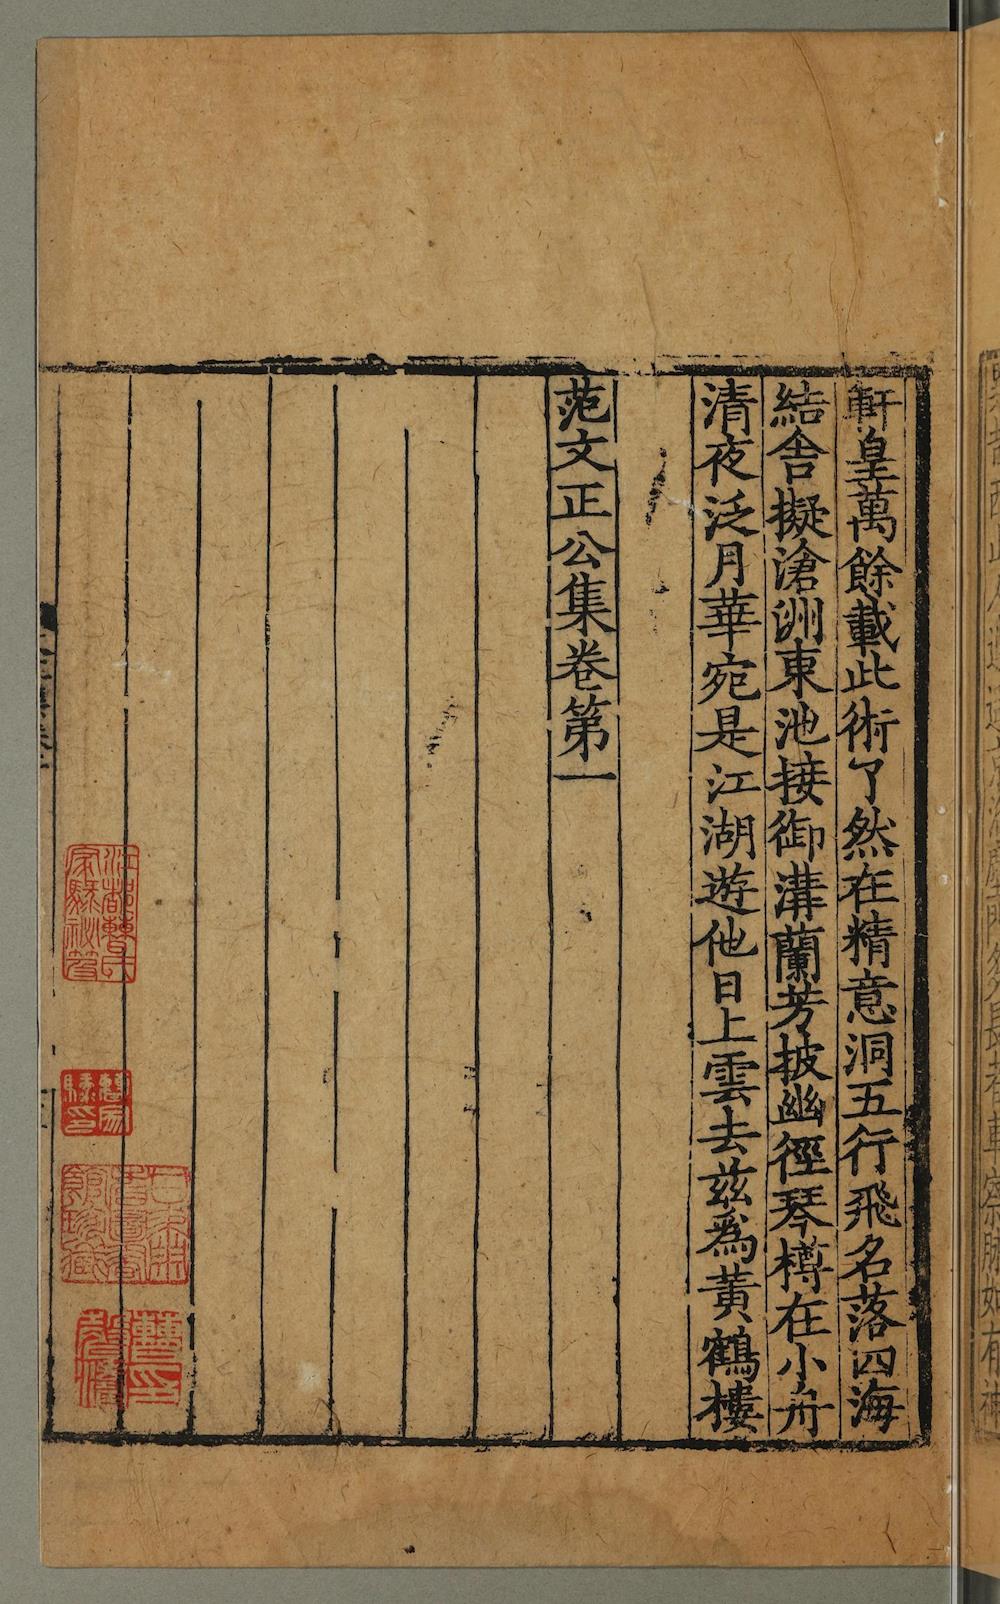 軒皇萬餘載此術了然在精意洞五行飛名落四海
結舎擬滄洲東池接御溝蘭芳披幽徑琴樽在小舟
清夜泛月華宛是江湖遊他日上雲去茲為黃鶴樓
范文正公集卷第一